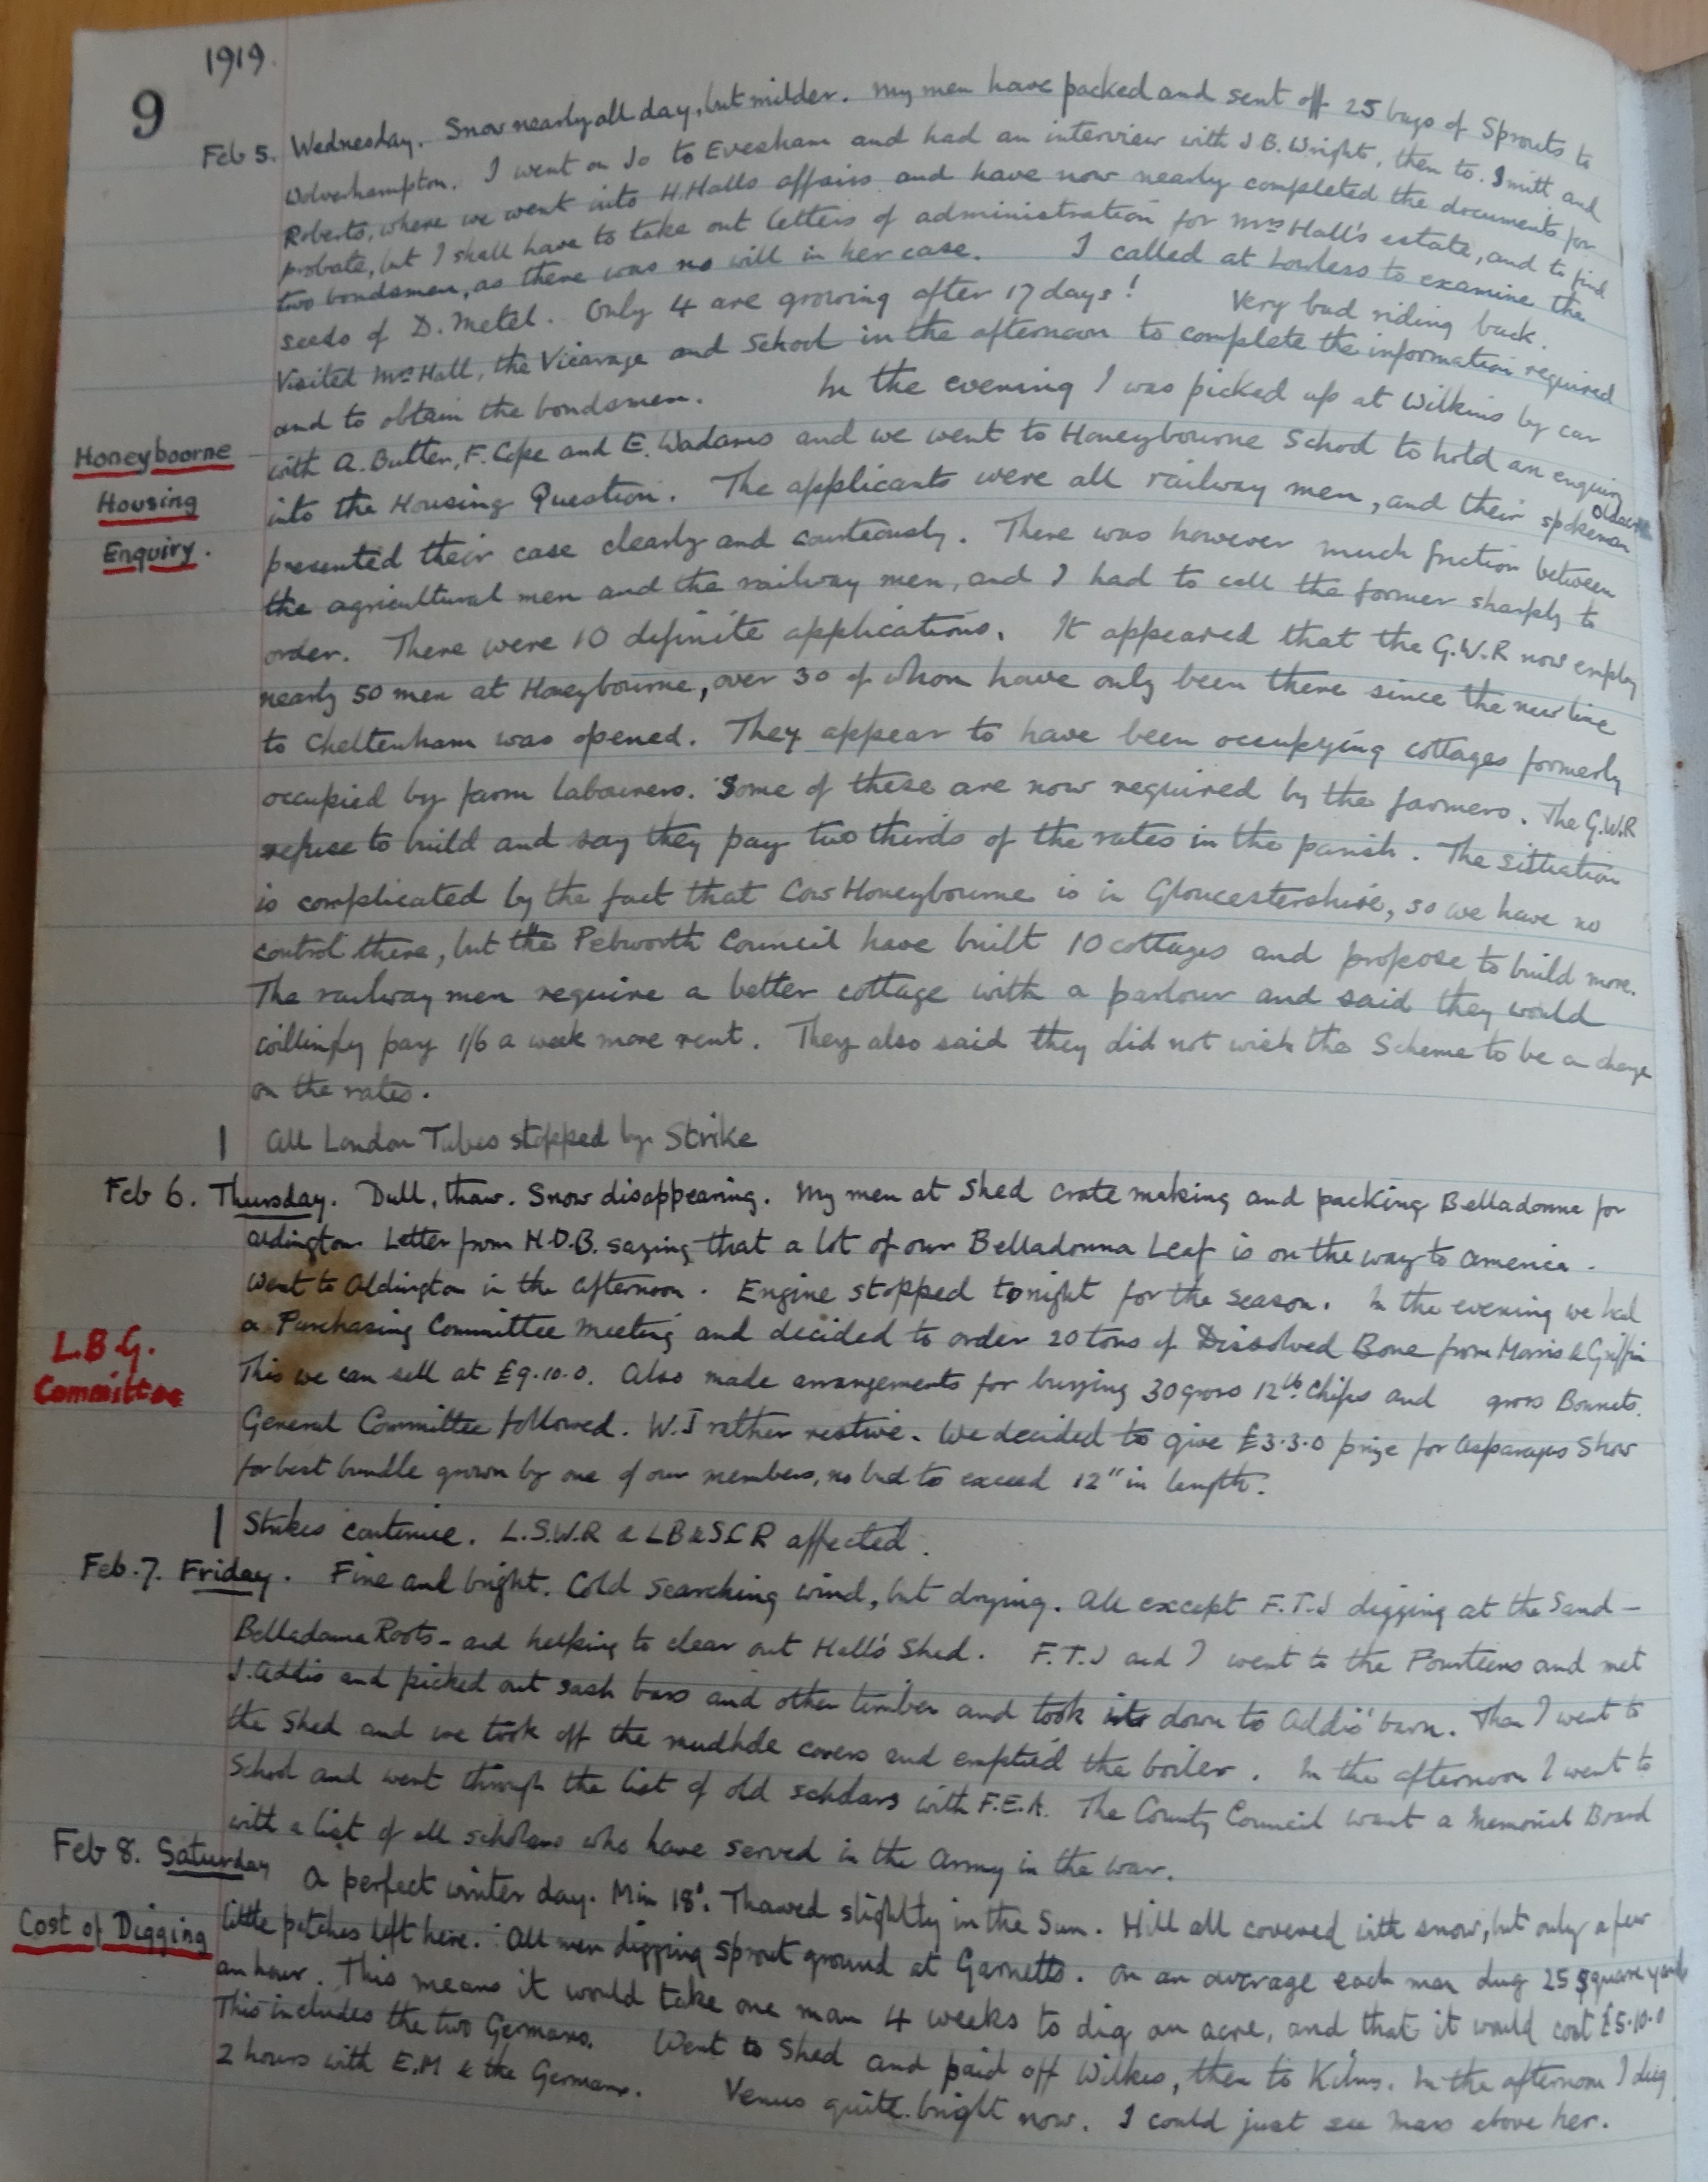 1919.
9
Feb 5. Wednesday. Snow nearly all day, but milder. My men have packed and sent off 25 bags of Sprouts to
Wolverhampton. I went on Jo to Evesham and had an interview with J B. Wright, then to Smith and
Roberts, where we went into H. Halls affairs and have now nearly completed the documents for
probate, but I shall have to take out letters of administration for Mrs Hall's estate, and to find
two bondsmen, as there was no will in her case. I called at Lowless to examine the
seeds of D. Metel. Only 4 are growing after 17 days! Very bad riding back.
Visited Mrs Hall, the Vicarage and School in the afternoon to complete the information required
and to obtain the bondsmen. In the evening I was picked up at Wilkins by car
Honeybourne
Housing
Enquiry.
with A. Butler, F. Cope and E. Wadams and we went to Honeybourne School to hold an enquiry
into the Housing Question. The applicants were all railway men, and their spokesman
presented their case clearly and courteously. There was however much friction between
the agricultural men and the railway men, and I had to call the former sharply to
order. There were 10 definite applications. It appeared that the G.W.R now employ
nearly 50 men at Honeybourne, over 30 of whom have only been there since the new line
to Cheltenham was opened. They appear to have been occupying cottages formerly
occupied by farm labourers. Some of these are now required by the farmers. The G.W.R
refuse to build and say they pay two thirds of the rates in the parish. The situation
is complicated by the fact that Cow Honeybourne is in Gloucestershire, so we have no
control there, but the Pebworth Council have built 10 cottages and propose to build more.
The railway men require a better cottage with a parlour and said they would
willingly pay 1/6 a week more rent. They also said they did not wish the Scheme to be a charge
on the rates.
| All London Tubes stopped by Strike
Feb 6. Thursday. Dull, thaw. Snow disappearing. My men at Shed crate making and packing Belladonna for
Aldington. Letter from H.D.B. saying that a lot of our Belladonna Leaf is on the way to America.
Went to Aldington in the afternoon. Engine stopped tonight for the season. In the evening we had
L.B.G.
Committee
a Purchasing Committee Meeting and decided to order 20 tons of Dissolved Bone from Morris & Griffin
This we can sell at £9.10.0. Also made arrangements for buying 30 gross 12lb Chips and gross Bonnets.
General Committee followed. W.J rather restive. We decided to give £3.3.0 prize for Asparagus Show
for best bundle grown by one of our members, no bud to exceed 12" in length.
| Strikes continue. L.S.W.R & LB&SCR affected.
Feb. 7. Friday. Fine and bright. Cold searching wind, but drying. All except F.T.J digging at the Sand -
Belladonna Roots - and helping to clear out Hall's Shed. F.T.J and I went to the Fourteens and met
J. Addis and picked out sash bars and other timber and took it down to Addis' barn. Then I went to
the Shed and we took off the mudhole covers and emptied the boiler. In the afternoon I went to
School and went through the list of old scholars with F.E.A. The County Council want a Memorial Board
with a list of all scholars who have served in the Army in the war.
Feb 8. Saturday A perfect winter day. Min 18°. Thawed slightly in the Sun. Hill all covered with snow, but only a few
Cost of Digging
little patches left here. All men digging sprout ground at Garnetts. On an average each man dug 25 square yards
an hour. This means it would take one man 4 weeks to dig an acre, and that it would cost £5.10.0
This includes the two Germans. Went to Shed and paid off Wilkes, then to Kilns. In the afternoon I dug
2 hours with E.M & the Germans. Venus quite bright now. I could just see Mars above her.